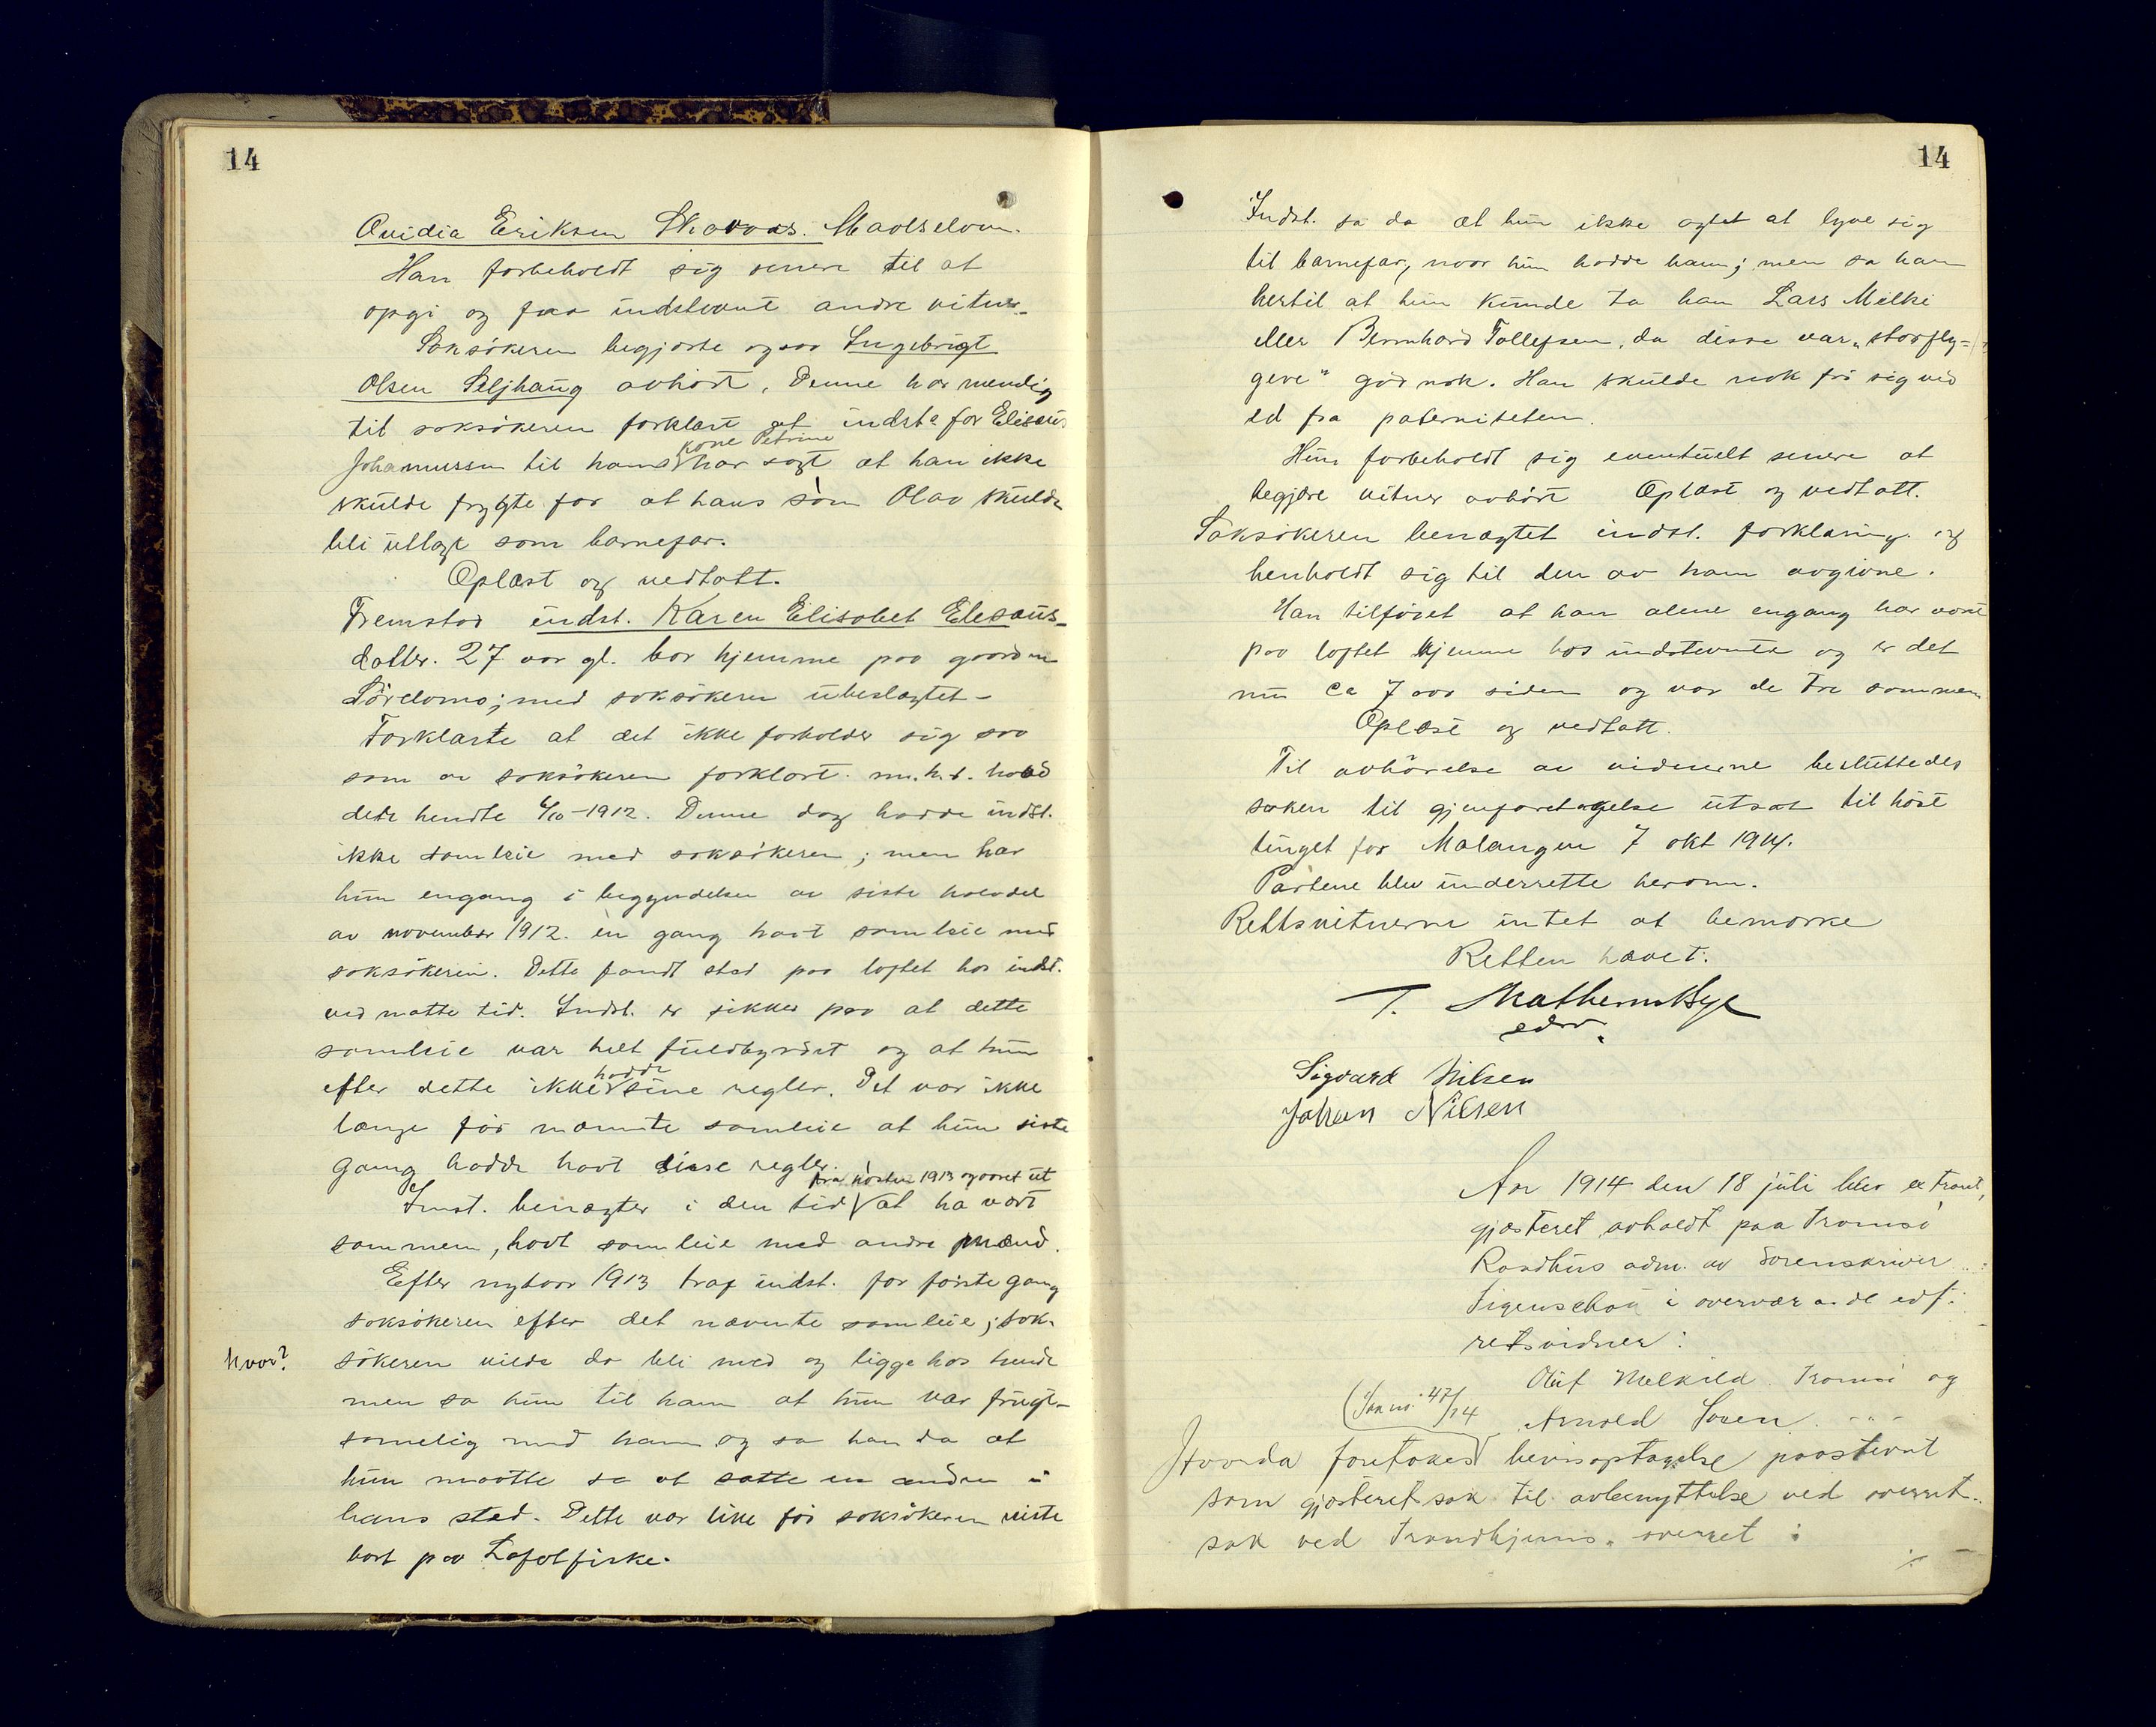 14
Ovidia Eriksen Skovaas. Maalselven.
Han forbeholdt sig senere til at
opgi og faa indstevnt andre vitner.
Saksøkeren begjærte ogsaa Ingebrigt
Olsen Seljhaug avhørt. Denne har mundtlig
til saksøkeren forklart at indst. for Elisæus
kone Petrine
Johannessen til hans har sagt at han ikke
skulde frygte for at hans søn Olav skulde
bli utlagt som barnefar.
Oplæst og vedtatt.
Fremstod indst. Karen Elisabet Elesæus-
datter. 27 aar gl. bor hjemme paa gaarden
Sørelomo; med saksøkeren ubeslægtet -
Forklarte at det ikke forholder sig saa
som av saksøkeren forklart m.h.t. hvad
dets hendte 6/10-1912. Denne dag hadde indst.
ikke samleie med saksøkeren; men har
hun engang i begyndelsen av siste halvdel
av november 1912. en gang havt samleie med
saksøkeren. Dette fandt sted paa loftet hos indst.
ved natte tid. Indst. er sikker paa at dette
samleie var helt fuldbyrdet og at hun
hadde
efter dette ikke sine regler. Det var ikke
længe før nævnte samleie at hun siste
gang hadde havt disse regler.
fra høsten 1913 og aaret ut
Inst. benægter i den tid at ha vært
sammen, havt samleie med andre mænd.
Efter nytaar 1913 traf indst. for første gang
saksøkeren efter det nævnte samleie; sak-
hvor?
søkeren vilde da bli med og ligge hos hende
men sa hun til ham at hun var frugt-
sommelig med ham og sa han da at
hun maatte se at sætte en anden i
hans sted. Dette var like før saksøkeren reiste
bort paa Lofotfiske.
14
Indst. sa da at hun ikke agtet at lyve sig
til barnefar, naar hun hadde ham; men sa han
hertil at hun kunde ta han Lars Melki
eller Bernhard Tollefsen, da disse var "storfly-
gere" god nok. Han skulde nok fri sig ved
ed fra paterniteten.
Hun forbeholdt sig eventuelt senere at
begjære vitner avhørt Oplæst og vedtatt.
Saksøkeren benægtet indst. forklaring og
henholdt sig til den av ham avgivne.
Han tilføiet at han alene engang har været
paa loftet hjemme hos indstevnte og er det
nu ca 7 aar siden og var de tre sammen
Oplæst og vedtatt.
Til avhørelse av vidnerne besluttedes
saken til gjenforetagelse utsat til høst
tinget for Malangen 7 okt 1914.
Partene blev underrette herom.
Rettsvitnerne intet at bemærke
Retten hævet.
T. Mathern Bye
edsv.
Sigvard Nilsen
Johan Nilsen
Aar 1914 den 18 juli blev extraord.
gjesteret avholdt paa Tromsø
Raadhus adm. av Sorenskriver
i overvær av de edf.
retsvidner:
Oluf Melkild. Tromsø og
(Sak nr. 47/14
Arnold Soren. - " -
Hvorda foretokes bevisoptagelse paastevnt
som gjesteretsak til avbenyttelse ved overret-
sak ved Trondhjems overret :
./.